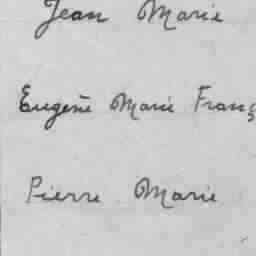 Jean Marie
Eugène Marie Franç
Pierre Marie